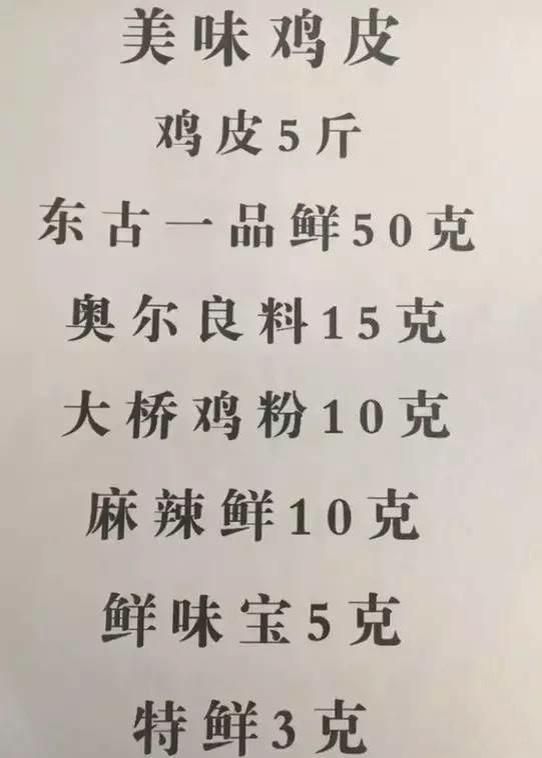 美味鸡皮
鸡皮5斤
东古一品鲜50克
奥尔良料15克
大桥鸡粉10克
麻辣鲜10克
鲜味宝5克
特鲜3克